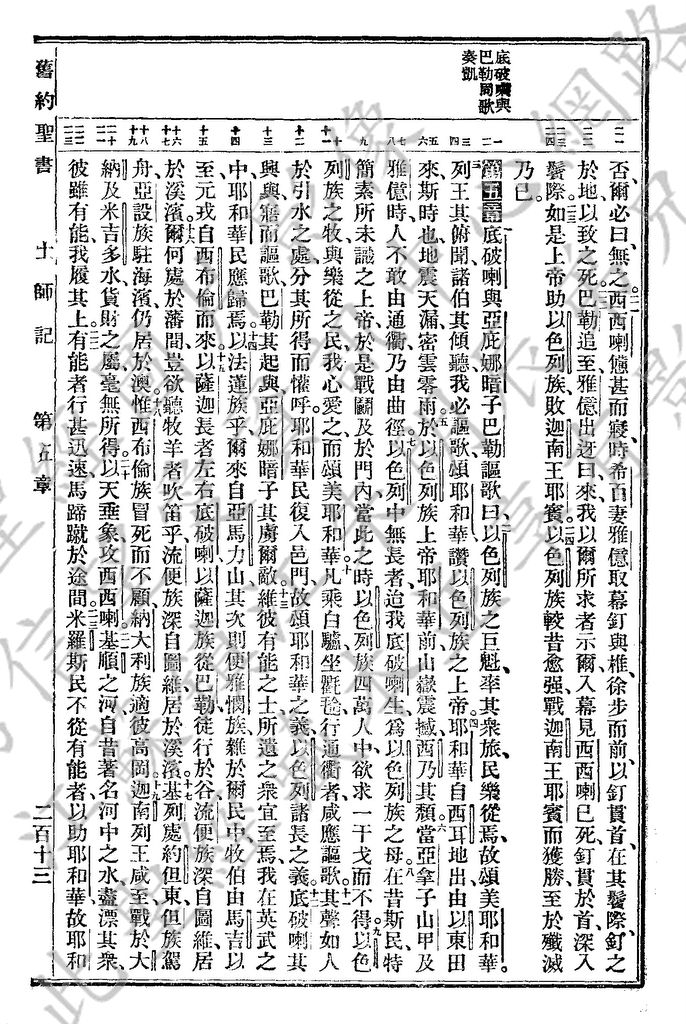 底破喇與
巴勒同歌
奏凱
否爾必曰無之西西喇憊甚而寢時希百妻雅億取幕釘與椎徐步而前以釘貫首在其鬢際釘之
於地以致之死巴勒追至雅億出迓曰來我以爾所求者示爾入幕見西西喇已死釘貫於首深入
鬢際如是上帝助以色列族敗迦南王耶賓以色列族較昔愈强戰迦南王耶賓而獲勝至於殲滅
乃已
第五章底破喇與亞庇娜暗子巴勒謳歌曰以色列族之巨魁率其衆旅民樂從焉故頌美耶和華
列王其俯聞諸伯其傾聽我必謳歌頌耶和華讚以色列族之上帝耶和華自西耳地出由以東田
來斯時也地震天漏密雲零雨於以色列族上帝耶和華前山嶽震撼西乃其頹當亞拿子山甲及
雅億時人不敢由通衢乃由曲徑以色列中無長者迨我底破喇生爲以色列族之母在昔斯民特
簡素所未識之上帝於是戰鬭及於門內當此之時以色列族四萬人中欲求一干戈而不得以色
列族之牧與樂從之民我心愛之而頌美耶和華凡乘白驢坐氍毹行通衢者咸應謳歌其聲如人
於引水之處分其所得而懽呼耶和華民復入邑門故頌耶和華之義以色列諸長之義底破喇其
興興寤而謳歌巴勒其起與亞庇娜暗子其虜爾敵維彼有能之士所遣之衆宜至焉我在英武之
中耶和華民應歸焉以法蓮族乎爾來自亞馬力山其次則便雅憫族雜於爾民中牧伯由馬吉以
至元戎自西布倫而來以薩迦長者左右底破喇以薩迦族從巴勒徒行於谷流便族深自圖維居
於溪濱爾何處於藩間豈欲聽牧羊者吹笛乎流便族深自圖維居於溪濱基列處約但東但族駕
舟亞設族駐海濱仍居於澳惟西布倫族冒死而不顧納大利族適彼高岡迦南列王咸至戰於大
納及米吉多水貨財之屬毫無所得以天垂象攻西西喇基順之河自昔著名河中之水盡漂其衆
彼雖有能我履其上有能者行甚迅速馬蹄蹴於途間米羅斯民不從有能者以助耶和華故耶和
舊約聖書 士師記 第五章 二百十三